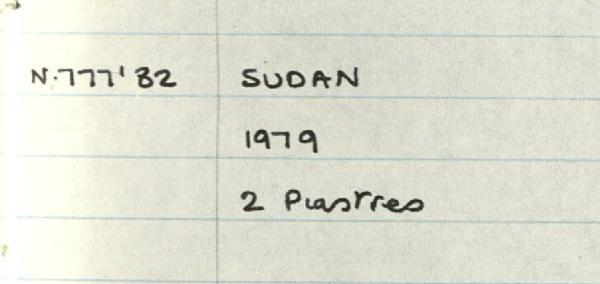 N.777'82 SUDAN
1979
2 Piastres